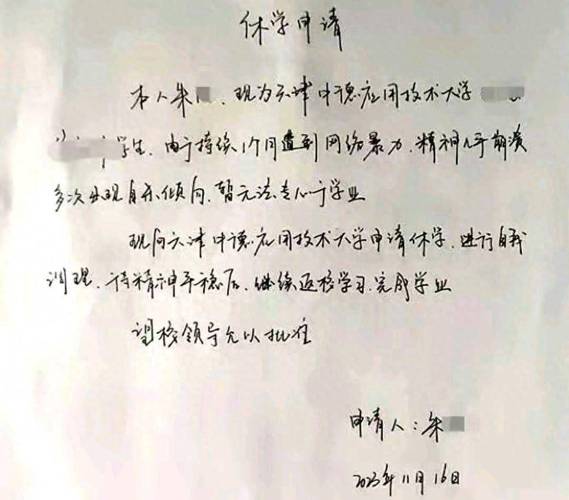 休学申请
本人朱 , 现为天津中德应用技术大学
学生, 由于持续1个月遭到网络暴力, 精神几乎崩溃
多次出现自杀倾向, 暂无法专心于学业
现向天津中德应用技术大学申请休学, 进行自我
调理, 待精神平稳后, 继续返校学习, 完成学业
望校领导允以批准
申请人: 朱
2023年11月16日